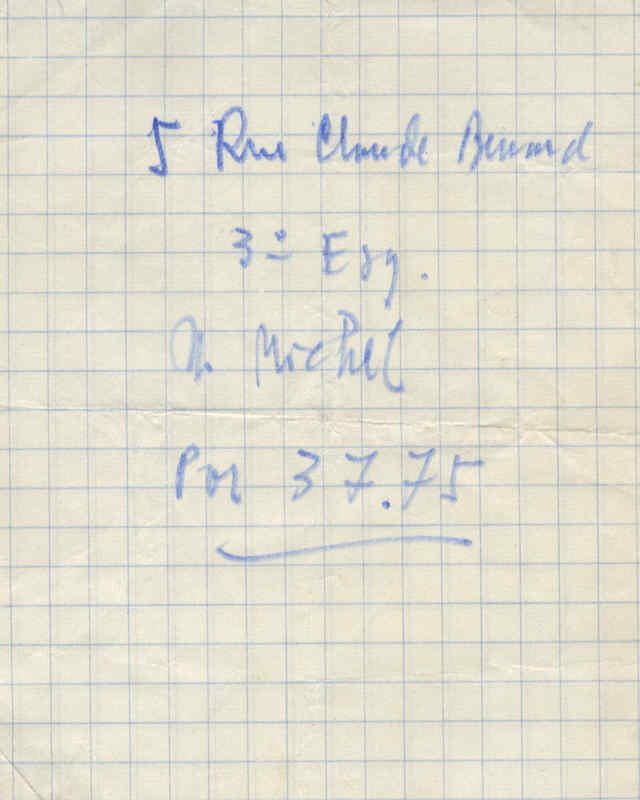 5 Rue Claude Bernard
3º Esq.
M. Michel
Por 37.75